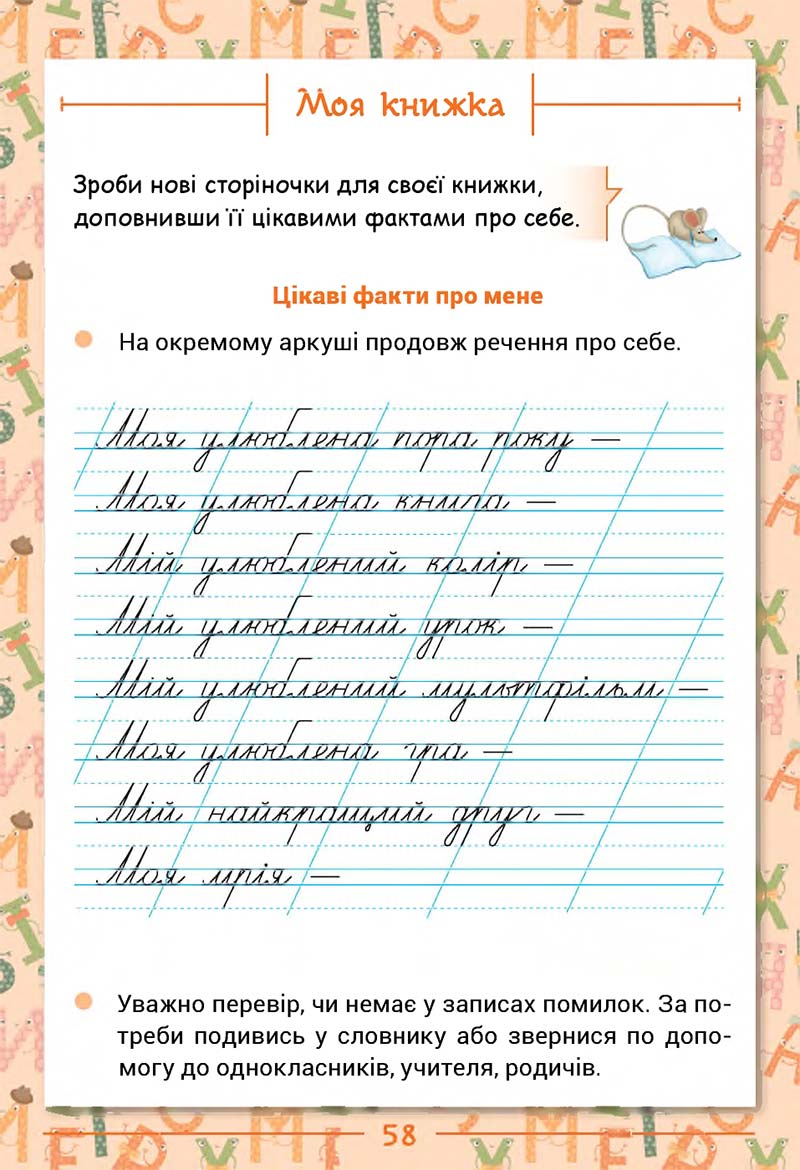 Моя книжка
Зроби нові сторіночки для своєї книжки,
доповнивши її цікавими фактами про себе.
Цікаві факти про мене
На окремому аркуші продовж речення про себе.
Моя улюблена пора року —
Моя улюблена книга —
Мій улюблений колір —
Мій улюблений урок —
Мій улюблений мультфільм —
Моя улюблена гра —
Мій найкращий друг —
Моя мрія —
Уважно перевір, чи немає у записах помилок. За по-
треби подивись у словнику або звернися по допо-
могу до однокласників, учителя, родичів.
58